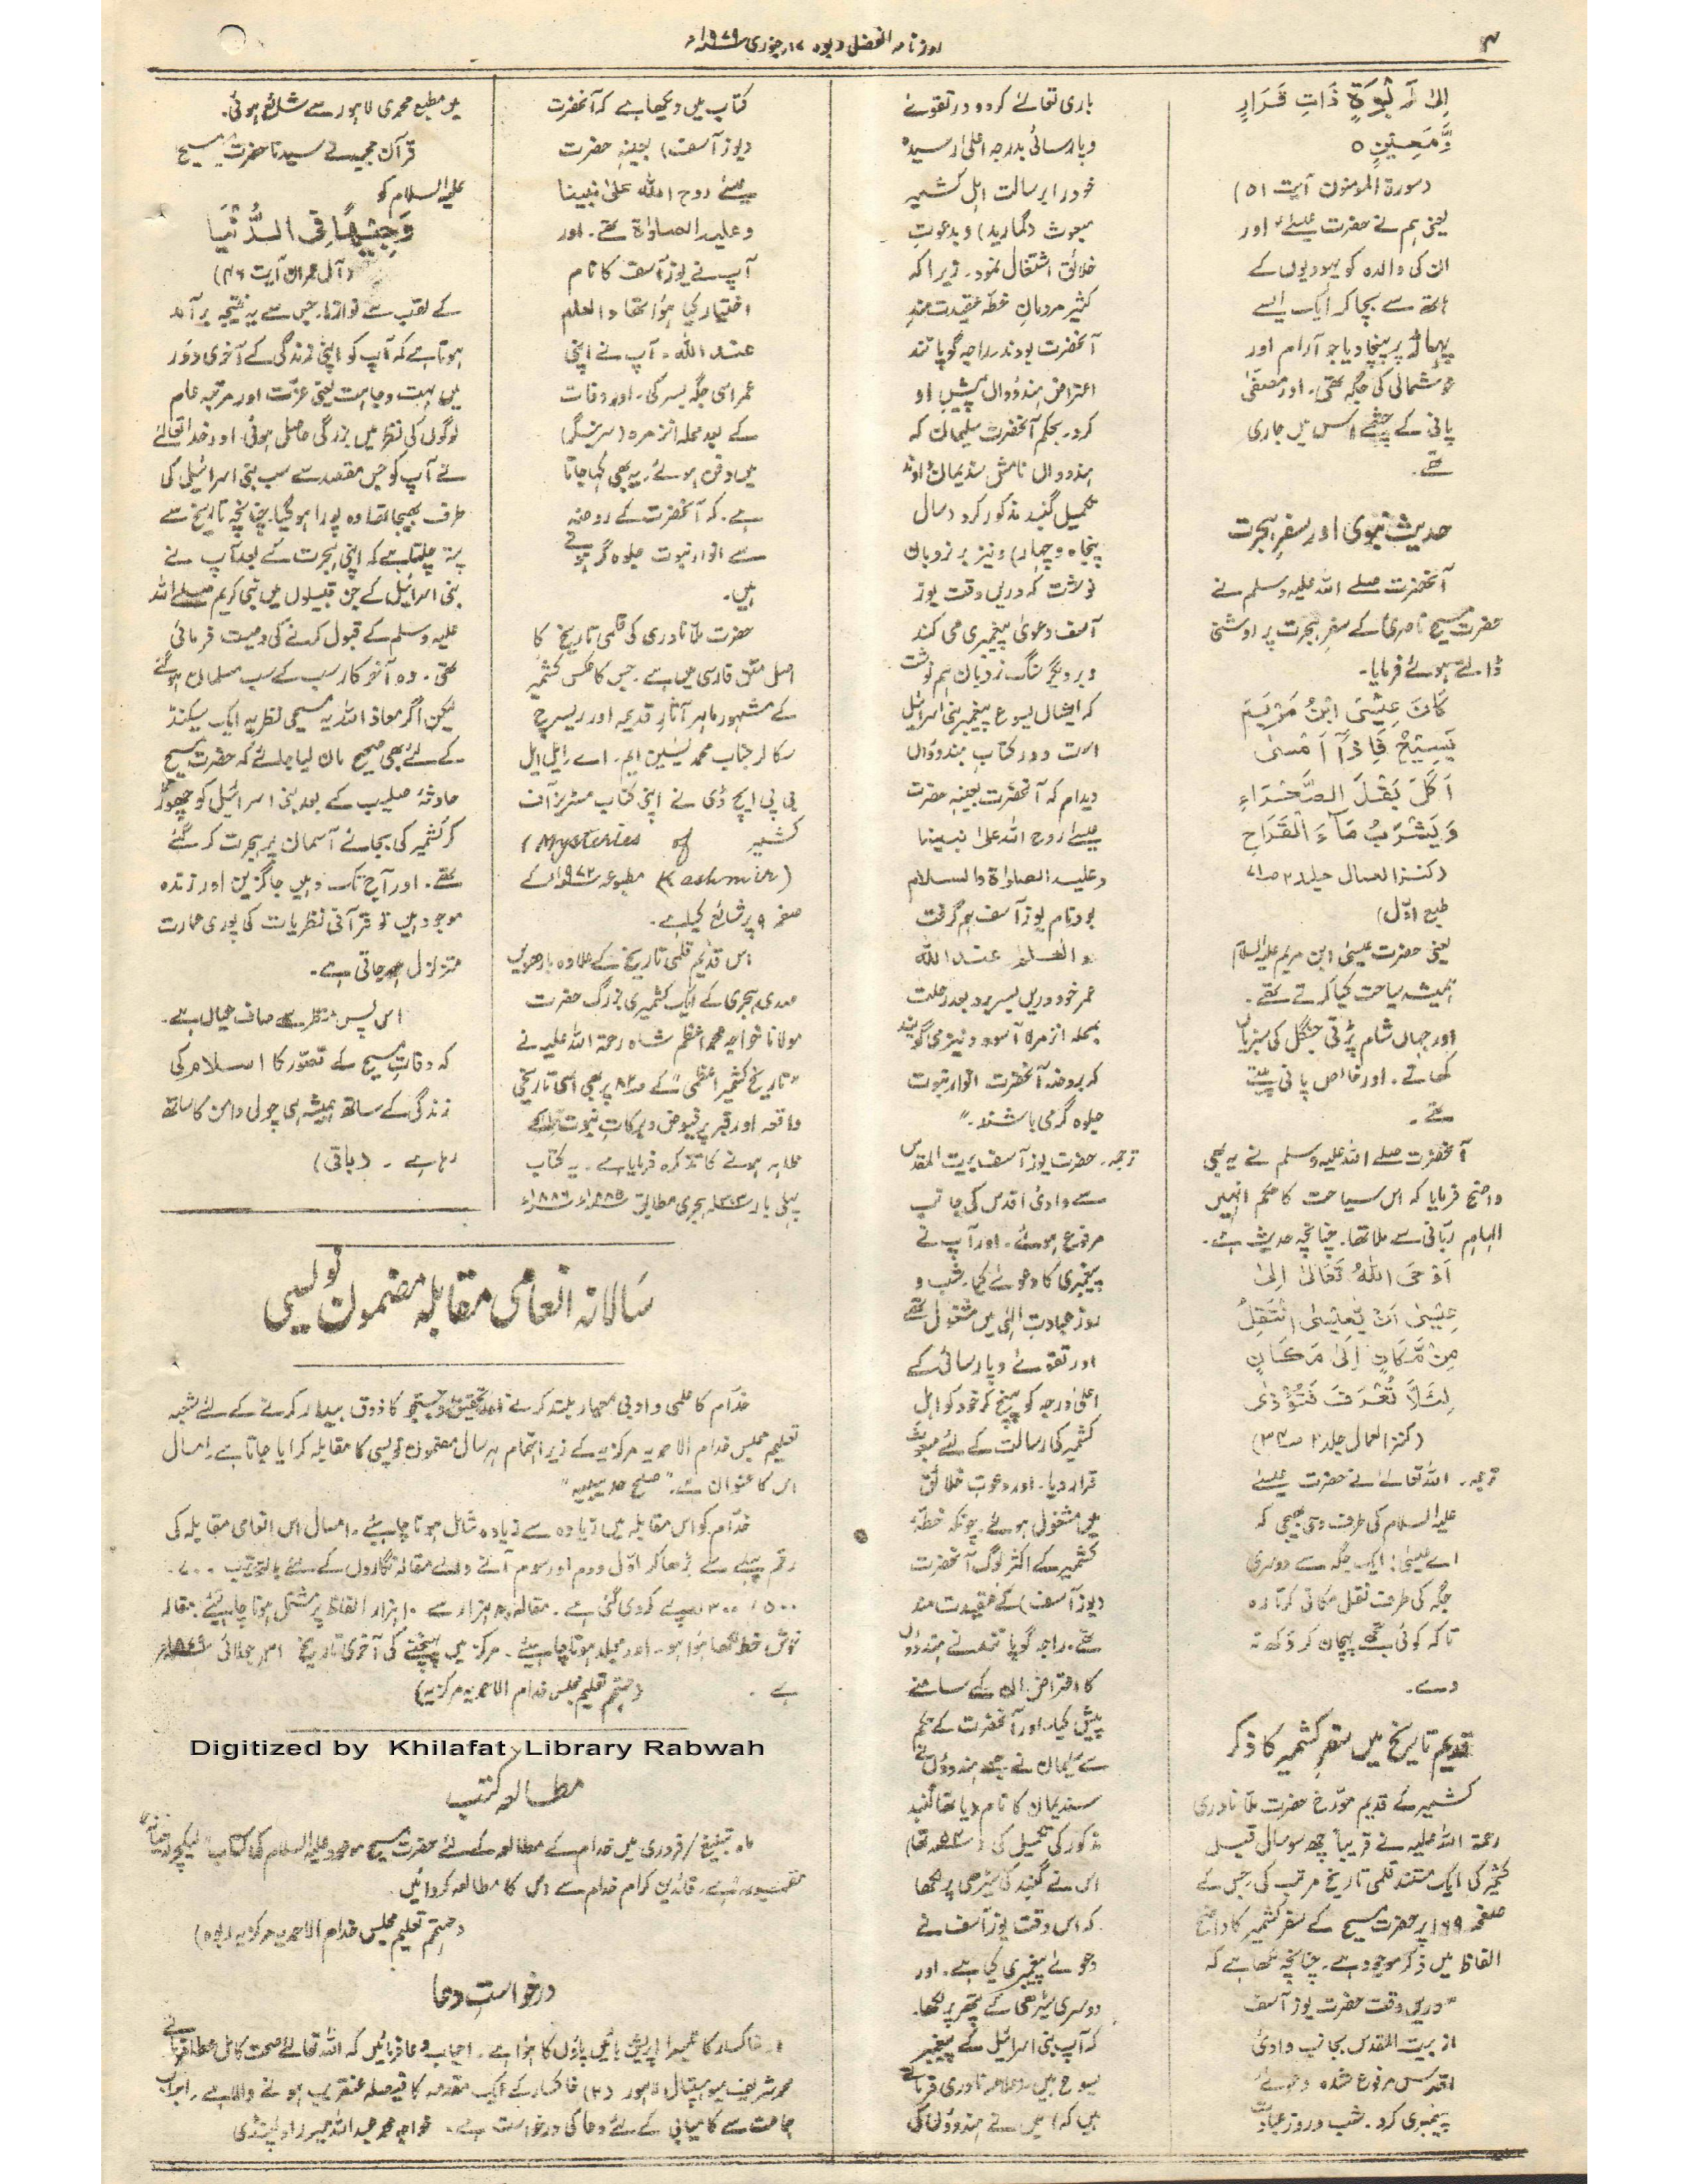 ۴
روزنامہ الفضل ربوہ ۱۷ جنوری ۱۹۷۹ء
اِلٰى رَبْوَةٍ ذَاتِ قَرَارٍ
وَّمَعِيْنٍ ٥
(سورة المومنون آیت ۵۱)
یعنی ہم نے حضرت عیسےٰ اور
ان کی والدہ کو یہودیوں کے
ہاتھ سے بچا کر ایک ایسے
پہاڑ پر پہنچا دیا جو آرام اور
خوشحالی کی جگہ تھی۔ اور مصفّٰی
پانی کے چشمے اس میں جاری
تھے۔
حدیث نبوی اور سفرِ ہجرت
آنحضرت صلے اللہ علیہ وسلم نے
حضرت مسیح ناصری کے سفرِ ہجرت پر روشنی
ڈالتے ہوئے فرمایا۔
كَانَ عِيْسَى ابْنُ مَرْيَمَ
يَسِيْحُ فَاِذَآ اَمْسٰى
اَكَلَ بَقْلَ الصَّحْرَاءِ
وَيَشْرَبُ مَآءَ الْقَرَاحِ
(کنز العمال جلد ۲ صـ ۷۱
طبع اوّل)
یعنی حضرت عیسیٰ ابن مریم علیہ السلام
ہمیشہ سیاحت کیا کرتے تھے۔
اور جہاں شام پڑتی جنگل کی سبزیاں
کھاتے۔ اور خالص پانی پیتے
تھے۔
آنحضرت صلے اللہ علیہ وسلم نے یہ بھی
واضح فرمایا کہ اس سیاحت کا حکم انہیں
الہامِ ربّانی سے ملا تھا۔ چنانچہ حدیث ہے۔
اَوْحَى اللهُ تَعَالٰى اِلٰى
عِيْسٰى اَنْ يّٰعِيْسٰى انْتَقِلْ
مِنْ مَّكَانٍ اِلٰى مَكَانٍ
لِئَلَّا تُعْرَفَ فَتُؤْذٰى
(کنز العمال جلد ۲ صـ ۳۴)
ترجمہ۔ اللہ تعالےٰ نے حضرت عیسےٰ
علیہ السلام کی طرف وحی بھیجی کہ
اے عیسیٰ! ایک جگہ سے دوسری
جگہ کی طرف نقل مکانی کرتا رہ
تاکہ کوئی تجھے پہچان کر دکھ نہ
دے۔
قدیم تاریخ میں سفرِ کشمیر کا ذکر
کشمیر کے قدیم مؤرخ حضرت ملّا نادری
رحمۃ اللہ علیہ نے قریباً چھ سو سال قبل
کشمیر کی ایک مستند قلمی تاریخ مرتب کی جس کے
صفحہ ۱۶۹ پر حضرت مسیح کے سفرِ کشمیر کا واضح
الفاظ میں ذکر موجود ہے۔ چنانچہ لکھا ہے کہ
"دریں وقت حضرت یوز آسف
از بیت المقدس بجانب وادیٔ
اقدس مرفوع شدہ دعوےٰ
پیغمبری کرد۔ شب و روز عبادت
باری تعالےٰ کرد و در تقوےٰ
و پارسائی بدرجہ اعلیٰ رسیدہ
خود را برسالت اہل کشمیر
مبعوث (گمارید) و بدعوتِ
خلائق اشتغال نمود۔ زیرا کہ
کثیر مردمانِ خطہ عقیدت مندِ
آنحضرت بودند راجہ گوپانند
اعتراض ہندوواں پیش او
کرد۔ بحکم آنحضرت سلیمان کہ
ہندوواں نامش سندیمان دادند
تکمیل گنبد مذکور کرد (سال
پنجاہ و چہار) و نیز بر نردبان
نوشت کہ دریں وقت یوز
آسف دعویٰ پیغمبری می کند
و بر دیگر سنگ نردبان ہم نوشت
کہ ایشاں یسوع پیغمبر بنی اسرائیل
است و در کتاب ہندوواں
دیدام کہ آنحضرت بعینہ حضرت
عیسےٰ روح اللہ علیٰ نبینا
و علیہ الصلوٰۃ والسلام
بود نام یوز آسف ہم گرفت
والعلم عند اللہ
عمر خود دریں بسر برد بعد رحلت
بمحلہ انزمرہ آسود و نیز می گویند
کہ بروضہ آنحضرت انوار نبوت
جلوہ گر می باشند۔"
ترجمہ۔ حضرت یوز آسف بیت المقدس
سے وادیٔ اقدس کی جانب
مرفوع ہوئے۔ اور آپ نے
پیغمبری کا دعوےٰ کیا۔ شب و
روز عبادتِ الٰہی میں مشغول تھے
اور تقوےٰ و پارسائی کے
اعلیٰ درجہ کو پہنچ کر خود کو اہل
کشمیر کی رسالت کے لئے مبعوث
قرار دیا۔ اور دعوتِ خلائق
میں مشغول ہوئے۔ چونکہ خطہ
کشمیر کے اکثر لوگ آنحضرت
(یوز آسف) کے عقیدت مند
تھے۔ راجہ گوپانند نے ہندوؤں
کا اعتراض ان کے سامنے
پیش کیا۔ اور آنحضرت کے حکم
سے سلیمان نے جسے ہندوؤں نے
سندیمان کا نام دیا تھا گنبد
مذکور کی تکمیل کی (۵۴ تھا)
اس نے گنبد کی سیڑھی پر لکھا
کہ اس وقت یوز آسف نے
دعوےٰ پیغمبری کیا ہے۔ اور
دوسری سیڑھی کے پتھر پر لکھا۔
کہ آپ بنی اسرائیل کے پیغمبر
یسوع ہیں۔ (ملا نادری فرماتے
ہیں کہ) میں نے ہندوؤں کی
کتاب میں دیکھا ہے کہ آنحضرت
(یوز آسف) بعینہٖ حضرت
عیسےٰ روح اللہ علیٰ نبینا
و علیہ الصلوٰۃ تھے۔ اور
آپ نے یوز آسف کا نام
اختیار کیا ہوا تھا والعلم
عند اللہ۔ آپ نے اپنی
عمر اسی جگہ بسر کی۔ اور وفات
کے بعد محلہ انزمرہ (سرینگر)
میں دفن ہوئے۔ یہ بھی کہا جاتا
ہے۔ کہ آنحضرت کے روضہ
سے انوار نبوت جلوہ گر ہوتے
ہیں۔
حضرت ملّا نادری کی قلمی تاریخ کا
اصل متن فارسی میں ہے۔ جس کا عکس کشمیر
کے مشہور ماہر آثارِ قدیمہ اور ریسرچ
سکالر جناب محمد یٰسین ایم۔ اے۔ ایل ایل
بی پی ایچ ڈی نے اپنی کتاب مسٹریز آف
کشمیر (Mysteries of
Kashmir) مطبوعہ ۱۹۷۲ء کے
صفحہ ۹ پر شائع کیا ہے۔
اس قدیم قلمی تاریخ کے علاوہ بارھویں
صدی ہجری کے ایک کشمیری بزرگ حضرت
مولانا خواجہ محمد اعظم شاہ رحمۃ اللہ علیہ نے
"تاریخ کشمیر اعظمی" کے صـ ۸۲ پر بھی اسی تاریخی
واقعہ اور قبر پر فیوض و برکاتِ نبوت کے
ظاہر ہونے کا تذکرہ فرمایا ہے۔ یہ کتاب
پہلی بار ۱۳۰۳ ہجری مطابق ۱۸۸۵ء ۱۸۸۶ء
میں مطبع محمدی لاہور سے شائع ہوئی۔
قرآن مجید نے سیدنا حضرت مسیح
علیہ السلام کو
وَجِيْهًا فِى الدُّنْيَا
(آل عمران آیت ۴۶)
کے لقب سے نوازا۔ جس سے یہ نتیجہ برآمد
ہوتا ہے کہ آپ کو اپنی زندگی کے آخری دور
میں بہت وجاہت یعنی عزّت اور مرتبہ عام
لوگوں کی نظر میں بزرگی حاصل ہوئی۔ اور خدا تعالےٰ
نے آپ کو جس مقصد سے سب بنی اسرائیل کی
طرف بھیجا تھا وہ پورا ہو گیا۔ چنانچہ تاریخ سے
پتہ چلتا ہے کہ اپنی ہجرت کے بعد آپ نے
بنی اسرائیل کے جن قبیلوں میں نبی کریم صلے اللہ
علیہ وسلم کے قبول کرنے کی وصیت فرمائی
تھی۔ وہ آخر کار سب کے سب مسلمان ہو گئے
لیکن اگر معاذ اللہ یہ مسیحی نظریہ ایک سیکنڈ
کے لئے بھی صحیح مان لیا جائے کہ حضرت مسیح
حادثۂ صلیب کے بعد بنی اسرائیل کو چھوڑ
کر کشمیر کی بجائے آسمان پر ہجرت کر گئے
تھے۔ اور آج تک وہیں جاگزین اور زندہ
موجود ہیں تو قرآنی نظریات کی پوری عمارت
متزلزل ہو جاتی ہے۔
اس پس منظر سے صاف عیاں ہے۔
کہ وفاتِ مسیح کے تصوّر کا اسلام کی
زندگی کے ساتھ ہمیشہ ہی چولی دامن کا ساتھ
رہا ہے۔ (باقی)
سالانہ انعامی مقابلہ مضمون نویسی
خدّام کا علمی و ادبی معیار بلند کرنے اور تحقیق و جستجو کا ذوق بیدار کرنے کے لئے شعبہ
تعلیم مجلس خدام الاحمدیہ مرکزیہ کے زیر اہتمام ہر سال مضمون نویسی کا مقابلہ کرایا جاتا ہے۔ امسال
اس کا عنوان ہے۔ "صلح حدیبیہ"
خدّام کو اس مقابلہ میں زیادہ سے زیادہ شامل ہونا چاہیئے۔ امسال اس انعامی مقابلہ کی
رقم پہلے سے بڑھا کر اوّل دوم اور سوم آنے والے مقالہ نگاروں کے لئے بالترتیب ۷۰۰۔
۵۰۰، ۳۰۰ روپے کر دی گئی ہے۔ مقالہ ہزار سے ۱۰ ہزار الفاظ پر مشتمل ہونا چاہیئے۔ مقالہ
خوش خط لکھا ہوا ہو۔ اور مجلد ہونا چاہیئے۔ مرکز میں پہنچنے کی آخری تاریخ ۳۱ جولائی ۱۹۷۹ء
ہے۔ (مہتمم تعلیم مجلس خدام الاحمدیہ مرکزیہ)
Digitized by Khilafat Library Rabwah
مطالعہ کتب
ماہ تبلیغ/فروری میں خدام کے مطالعہ کے لئے حضرت مسیح موعود علیہ السلام کی کتاب "لیکچر لدھیانہ"
مقرر ہے۔ قائدین کرام خدام سے اس کا مطالعہ کروائیں۔
(مہتمم تعلیم مجلس خدام الاحمدیہ مرکزیہ ربوہ)
درخواستِ دعا
۱۔ خاکسار کا تیسرا اپریشن بائیں پاؤں کا ہوا ہے۔ احباب دعا فرمائیں کہ اللہ تعالےٰ صحت کامل عطا فرمائے
محمد شریف میو ہسپتال لاہور (۲) خاکسار کے ایک مقدمہ کا فیصلہ عنقریب ہونے والا ہے۔ احباب
جماعت سے کامیابی کے لئے دعا کی درخواست ہے۔ خواجہ محمد عبداللہ میر راولپنڈی